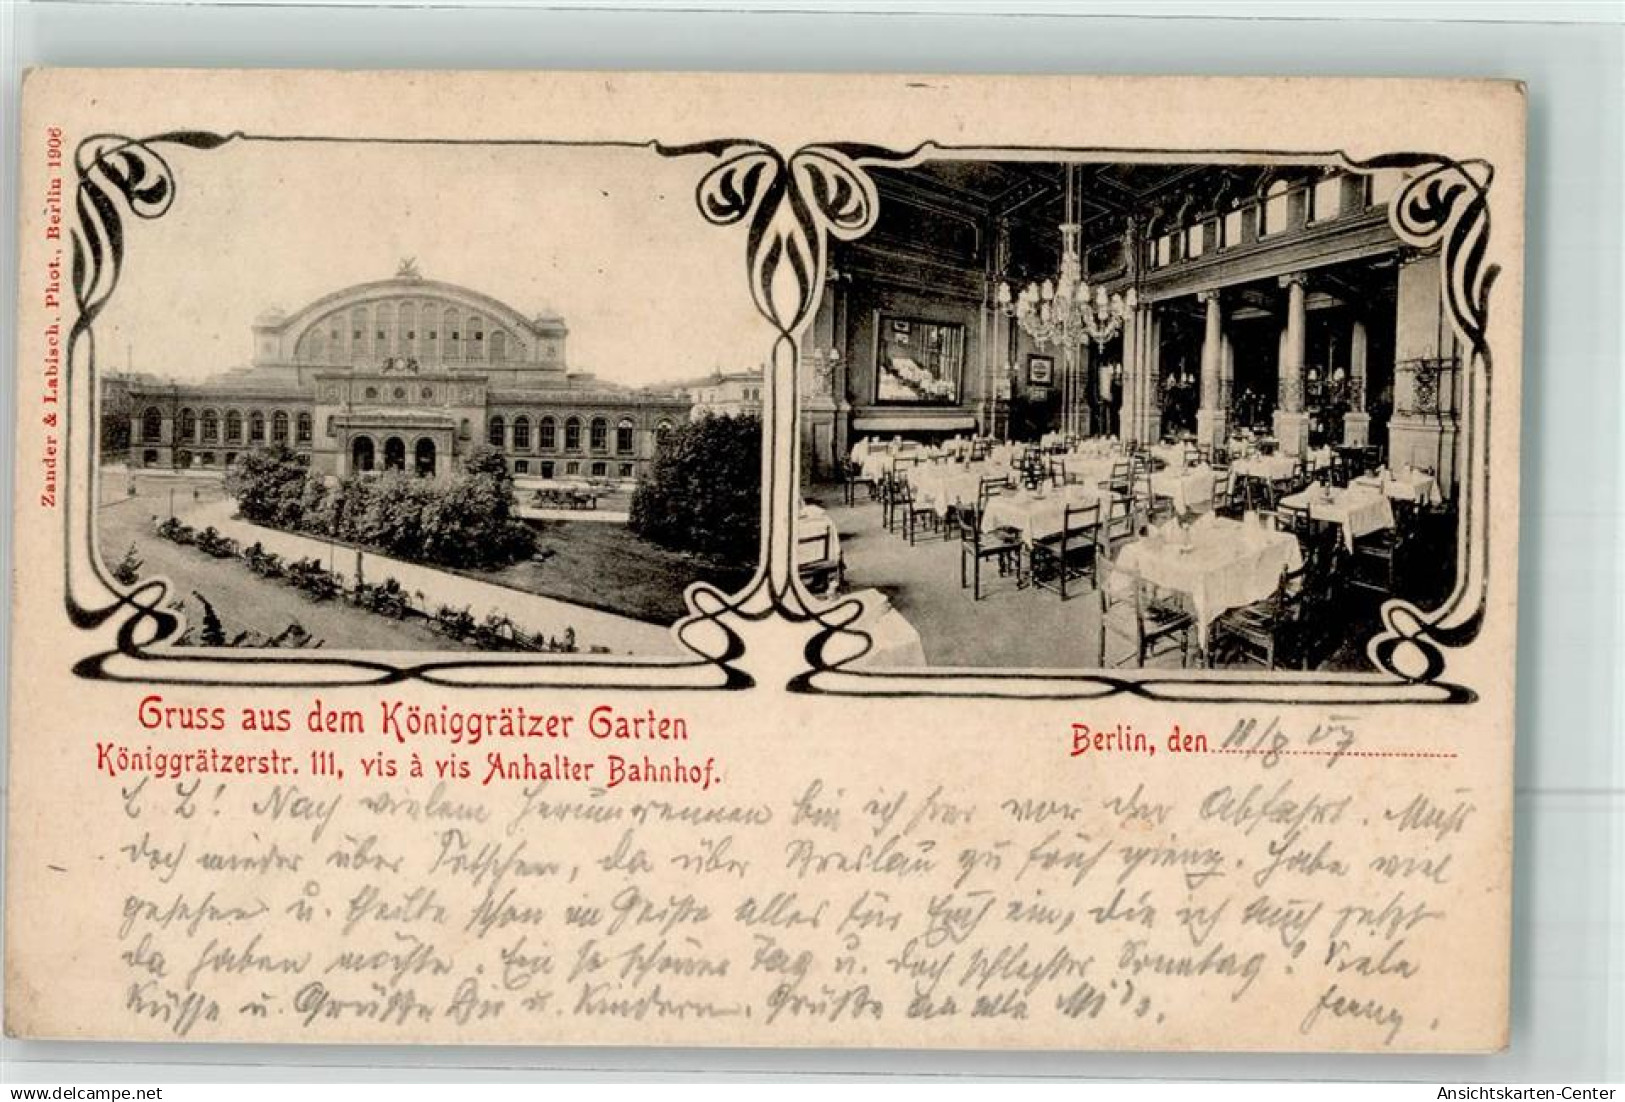 Zander & Labisch, Phot., Berlin 1906
Gruss aus dem Königgrätzer Garten
Königgrätzerstr. 111, vis à vis Anhalter Bahnhof.
Berlin, den 11/8 07
L! Nach vielem Herumrennen bin ich hier vor der Abfahrt. Muß
doch wieder über da über Breslau zu früh ging. Habe viel
gesehen u. theilte schon im Geiste alles für Euch ein, die ich auch jetzt
da haben möchte. Ein so schöner Tag u. doch schlechter Sonntag! Viele
Küsse u. Grüße Dir u. Kindern. Grüße an alle